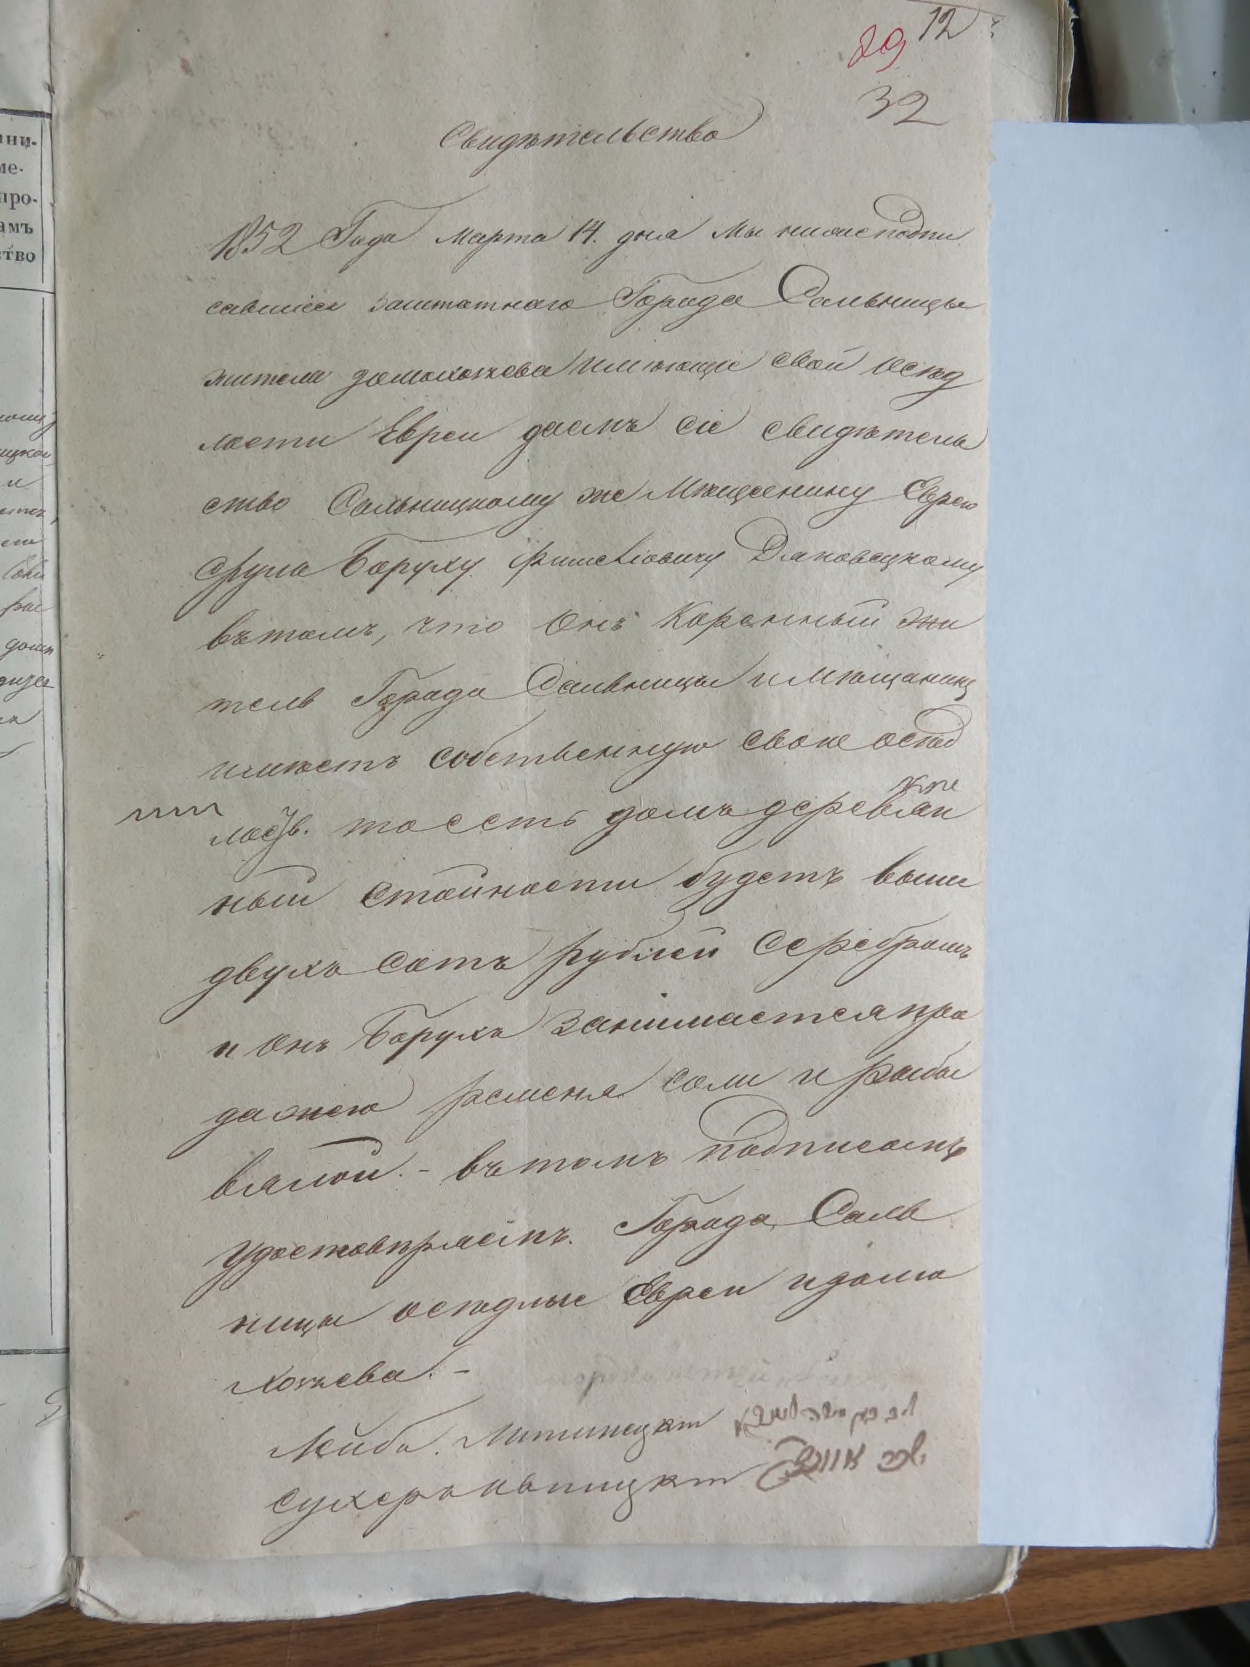 12
89
32
Свидѣтельство
1852 Года Марта 14. дня Мы нижеподпи
савшіеся заштатнаго Города Сальницы
жители домохозяева имеющіе свои осѣд
лости Евреи даемъ сіе свидѣтель
ство Сальницкому же Мѣщенину Еврею
Сруль Боруху Дяковецкому
въ томъ, что Онъ Коренный жи
тель Города Сальницы и мѣщанинъ
имѣетъ собственную свою осѣд
лость. то есть домъ деревян
ный стоимости будетъ выше
двухъ сотъ рублей серебромъ
и онъ Борухъ Занимается про
дажею ременя соли и рыбы
вялой. - въ томъ подписомъ
удостовѣряемъ. Города Саль
ницы осѣдлые Евреи и домо
хозяева. -
Лейба
ани-
ме-
про-
амъ
ство